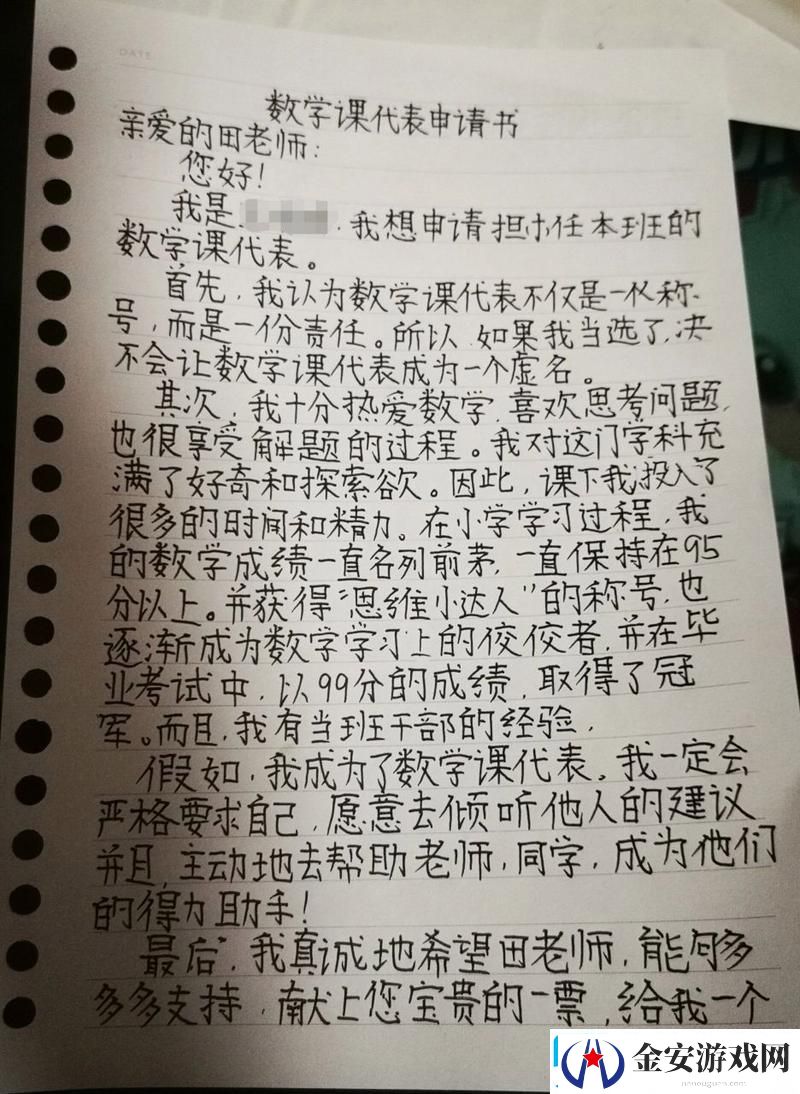 DATE
数学课代表申请书
亲爱的田老师：
您好！
我是 ，我想申请担任本班的
数学课代表。
首先，我认为数学课代表不仅是一个称
号，而是一份责任。所以如果我当选了，决
不会让数学课代表成为一个虚名。
其次，我十分热爱数学，喜欢思考问题，
也很享受解题的过程。我对这门学科充
满了好奇和探索欲。因此，课下我投入了
很多的时间和精力。在小学学习过程，我
的数学成绩一直名列前茅，一直保持在95
分以上。并获得“思维小达人”的称号，也
逐渐成为数学学习上的佼佼者，并在毕
业考试中，以99分的成绩，取得了冠
军。而且，我有当班干部的经验，
假如，我成为了数学课代表。我一定会
严格要求自己，愿意去倾听他人的建议
并且，主动地去帮助老师，同学，成为他们
的得力助手！
最后，我真诚地希望田老师，能够多
多多支持，献上您宝贵的一票，给我一个
金安游戏网